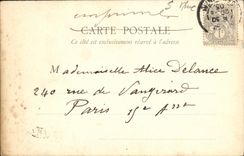 CARTE POSTALE
Ce côté est exclusivement réservé à l'adresse
Mademoiselle Alice Delance
240 rue de Vaugirard
Paris 15e Arrt